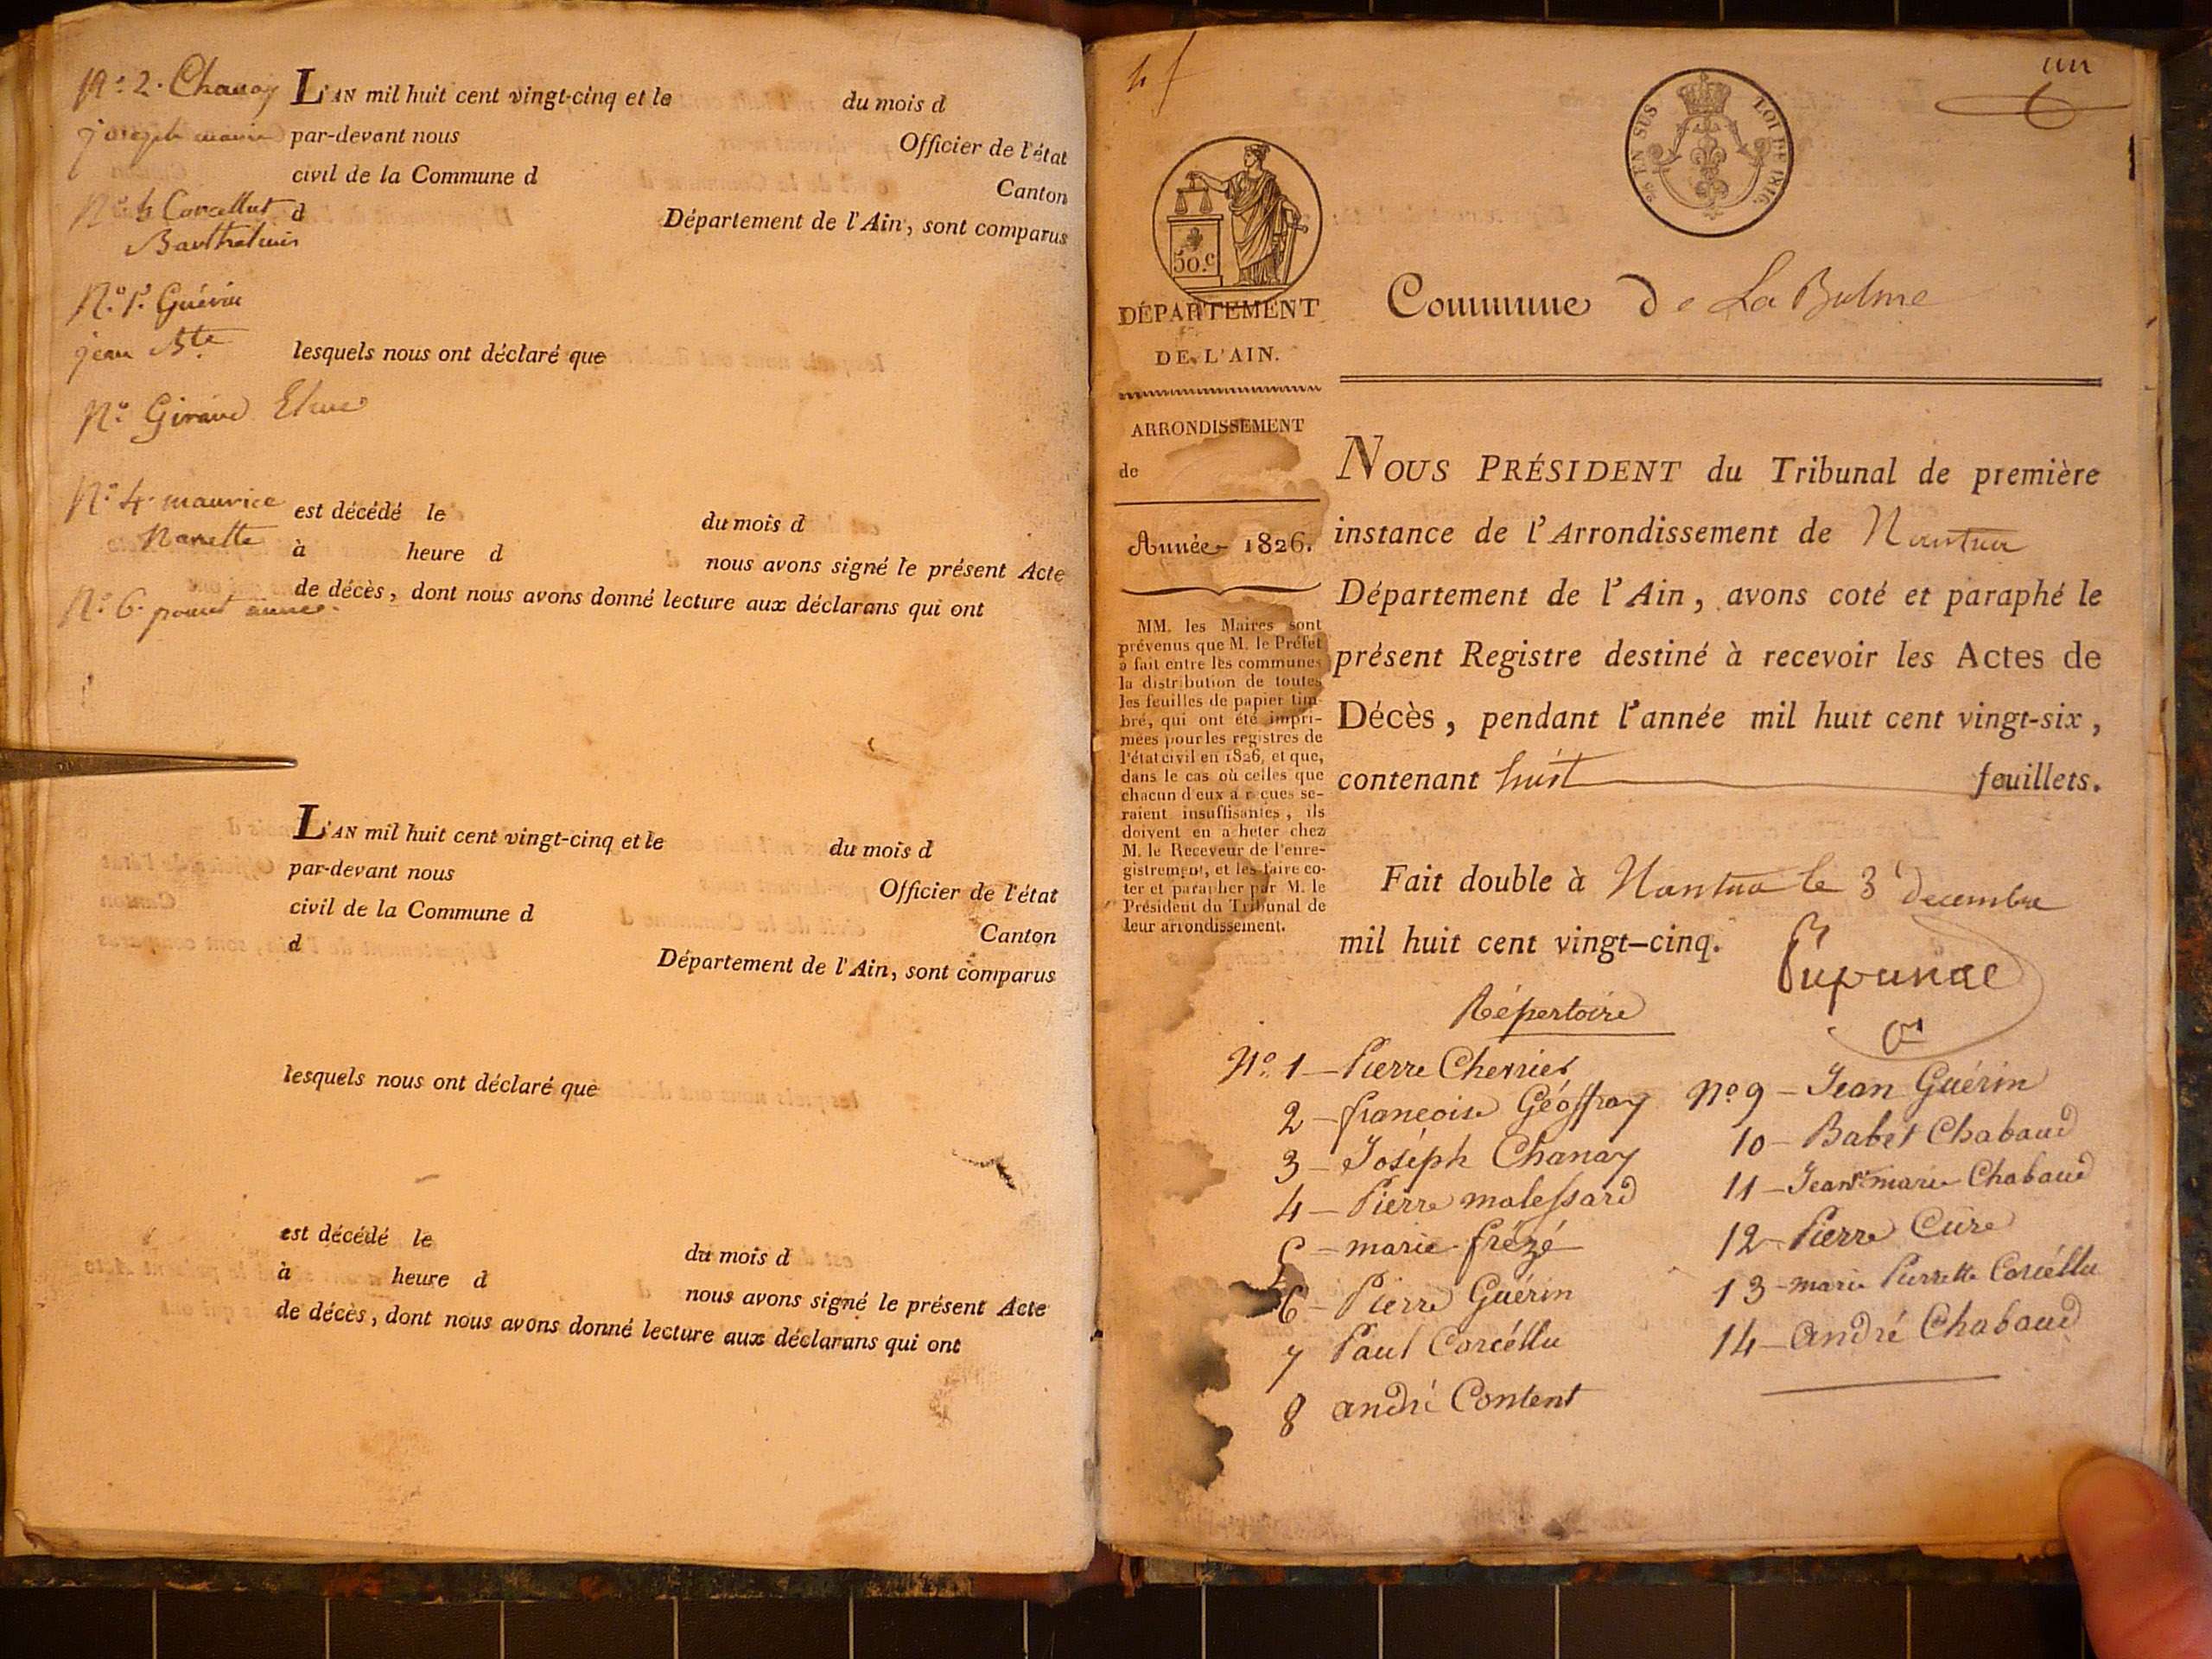 N.º 2. Chanay
joseph marie
N.º 3 Corcellut
Barthelmis
N.º 5. Guérin
jean Bte
N.º Giraud
N.º 4. maurice
Nanette
N.º 6.
L'AN mil huit cent vingt-cinq et le du mois d
par-devant nous Officier de l'état
civil de la Commune d Canton
d Département de l'Ain, sont comparus
lesquels nous ont déclaré que
est décédé le du mois d
à heure d nous avons signé le présent Acte
de décès, dont nous avons donné lecture aux déclarans qui ont
L'AN mil huit cent vingt-cinq et le du mois d
par-devant nous Officier de l'état
civil de la Commune d Canton
d Département de l'Ain, sont comparus
lesquels nous ont déclaré que
est décédé le du mois d
à heure d nous avons signé le présent Acte
de décès, dont nous avons donné lecture aux déclarans qui ont
un
EN SUS LOI DE 1816.
50.c
DÉPARTEMENT
DE L'AIN.
ARRONDISSEMENT
de
Année 1826.
MM. les Maires sont
prévenus que M. le Préfet
a fait entre les communes
la distribution de toutes
les feuilles de papier tim-
bré, qui ont été impri-
mées pour les registres de
l'état civil en 1826, et que,
dans le cas où celles que
chacun d'eux a reçues se-
raient insuffisantes, ils
doivent en acheter chez
M. le Receveur de l'enre-
gistrement, et les faire co-
ter et parapher par M. le
Président du Tribunal de
leur arrondissement.
Commune de La Balme
NOUS PRÉSIDENT du Tribunal de première
instance de l'Arrondissement de Nantua
Département de l'Ain, avons coté et paraphé le
présent Registre destiné à recevoir les Actes de
Décès, pendant l'année mil huit cent vingt-six,
contenant huit feuillets.
Fait double à Nantua le 3 decembre
mil huit cent vingt-cinq.
Répertoire
N.º 1 — Pierre Cherrier
2 — françoise Géoffray
3 — Joséph Chanay
4 — Pierre malessard
5 — marie frézé
6 — Pierre Guérin
7 Paul Corcéllu
8 andré Content
Nº 9 — Jean Guérin
10 — Babet Chabaud
11 — Jean marie Chabaud
12 — Pierre Cure
13 — marie Pierrette Corcéllu
14 — andré Chabaud